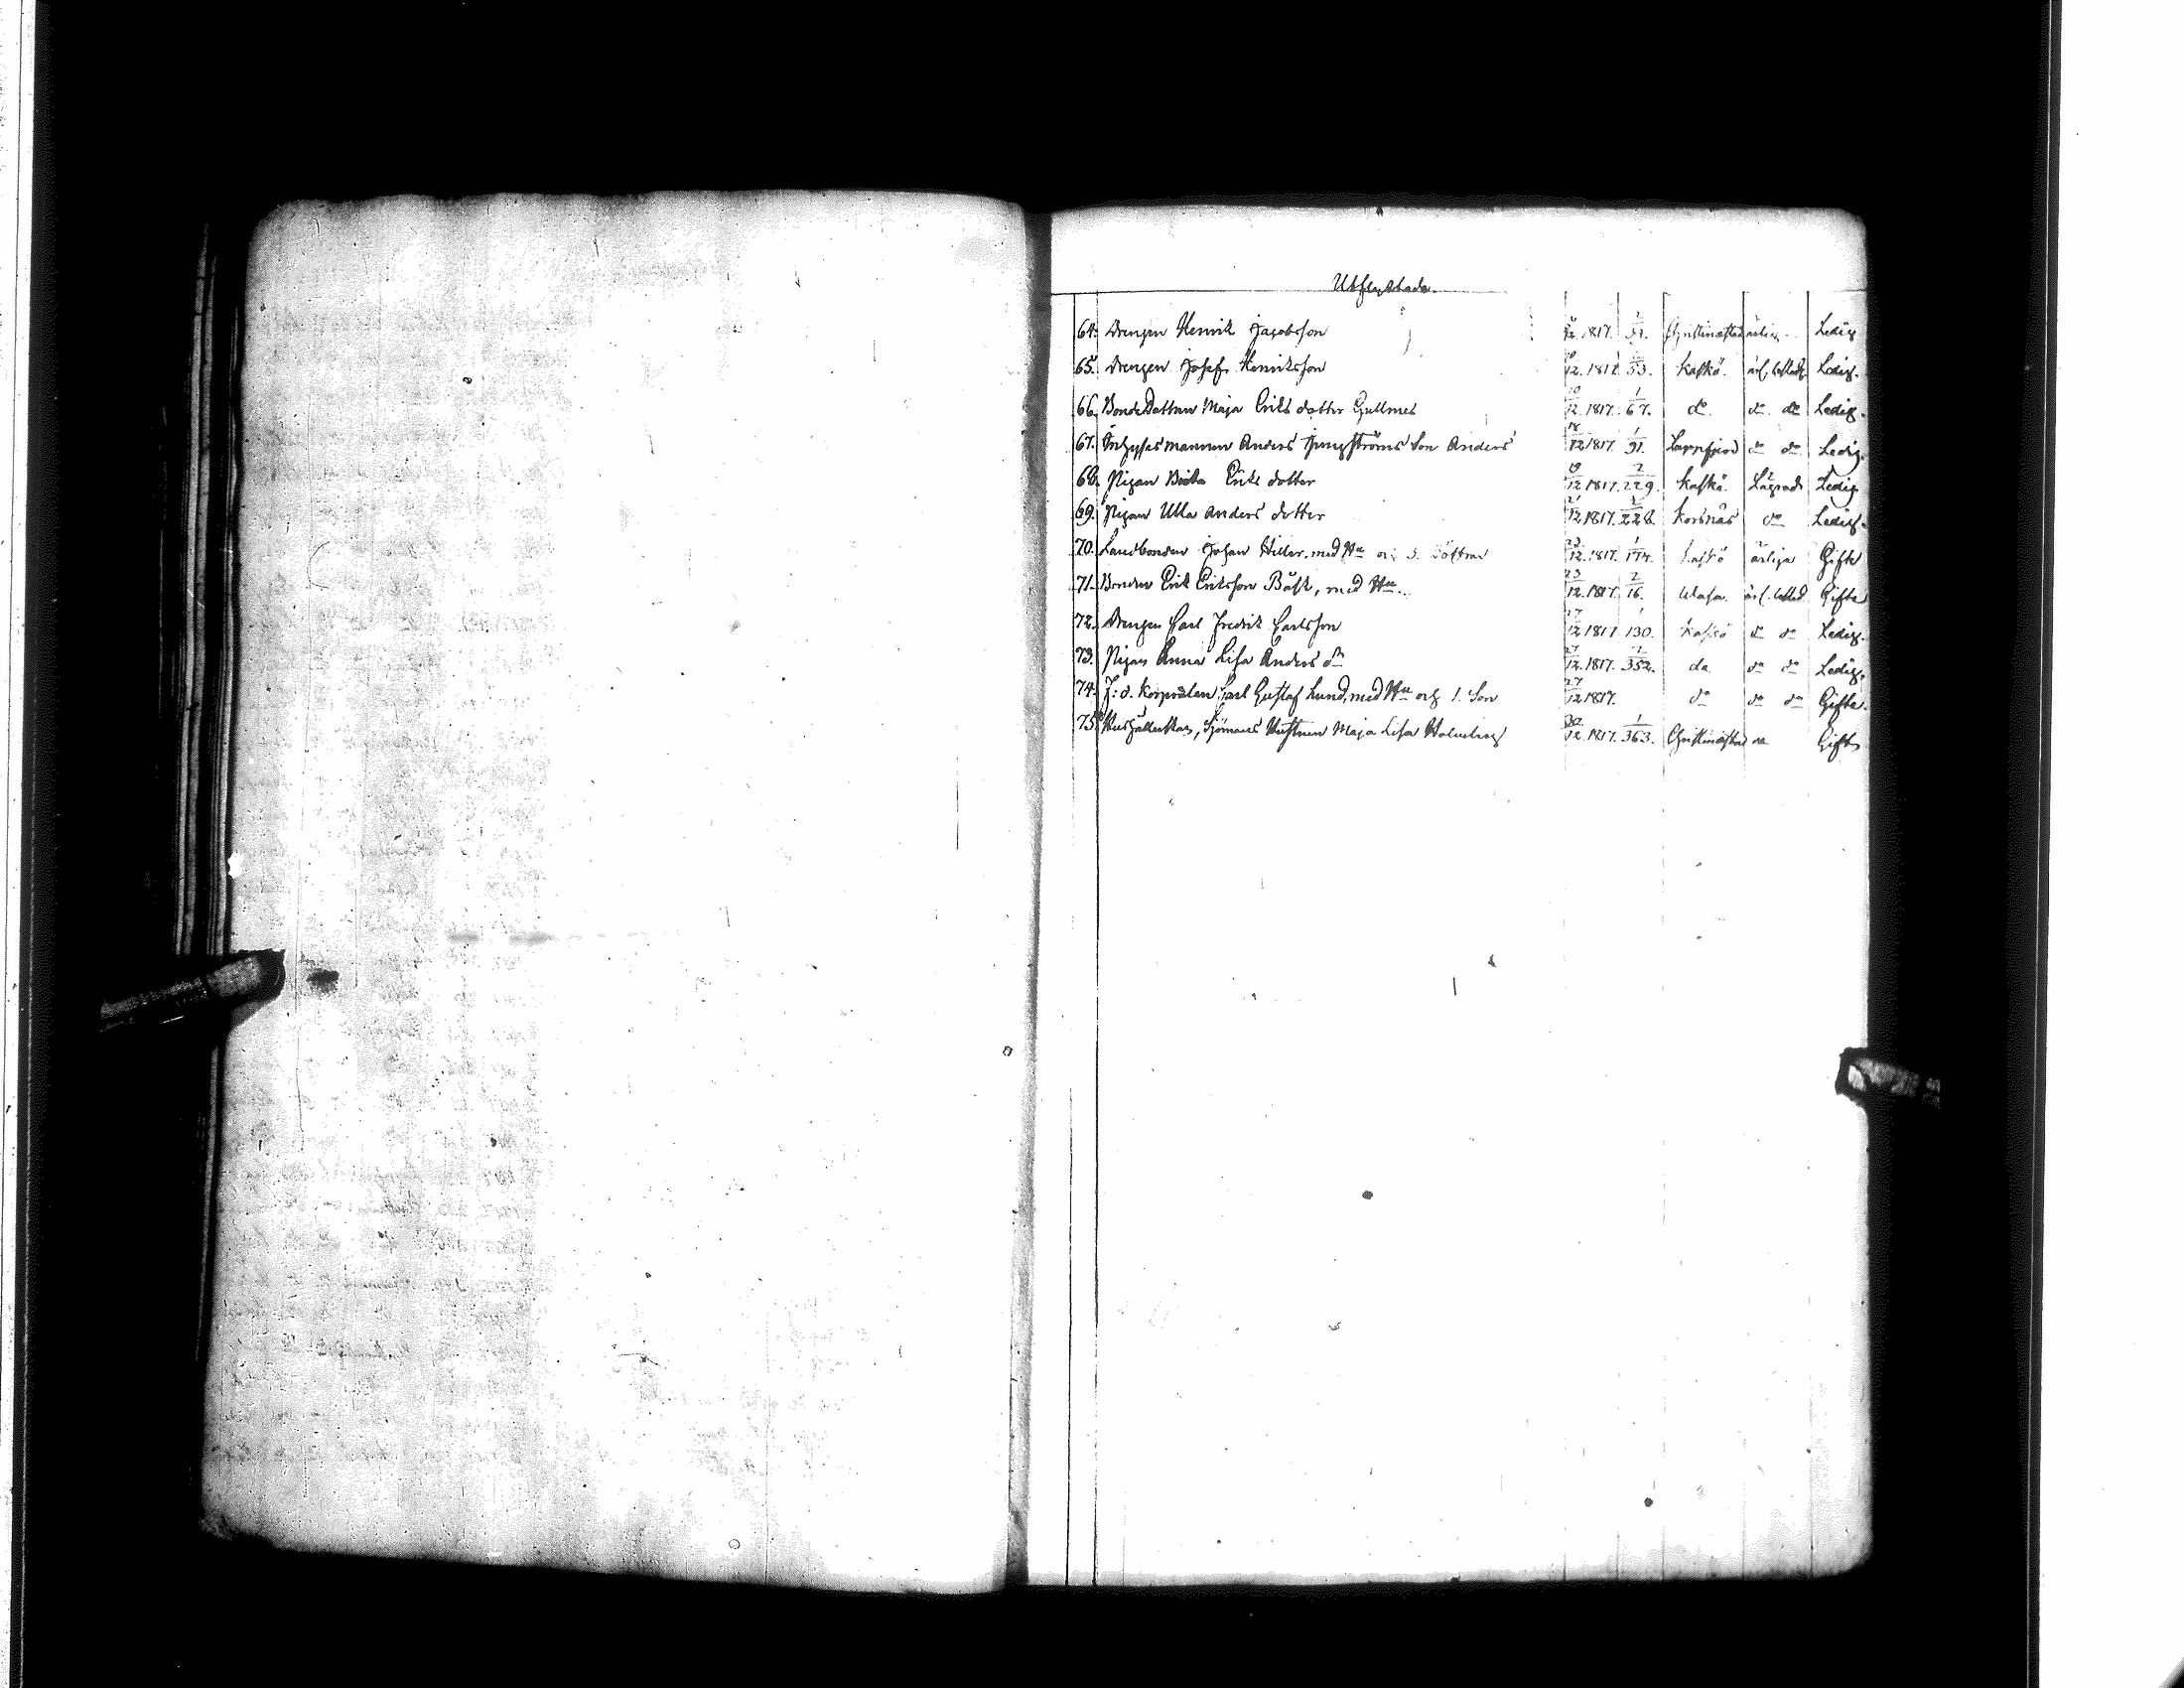 Utflyttade.
64. Drengen Henrik Jacobsson 12. 1817. Christinæstad ärlig Ledig
65. Drengen Josef Henriksson 12. 1817 1/53. Kaskö. Ledig.
66. BondeDottren Maja Eriks dotter Gullmes 12. 1817. 1/67. do. do do Ledig.
67. Inhysesmannen Anders Ljungströms Son Anders 18/12 1817 1/91. Lappfjerd do do Ledig.
68. Pigan Brita Eriks dotter 19/12 1817. 2/229. Kaskö. Ledig
69. Pigan Ulla Anders dotter 21/12 1817. 2/228. Korsnäs do Ledig.
70. Landbonden Johan Hiller, med Hu och 3. Döttrar 23/12. 1817. 1/174. Kaskö ärliga Gifte
71. Bonden Erik Eriksson Bäck, med Hu. 23/12. 1817. 2/16. Wasa. Gifta
72. Drengen Carl Fredrik Carlsson 27/12 1817 1/130. Kaskö do do Ledig.
73. Pigan Anna Lisa Anders dr 27/12. 1817. 2/352. do do do Ledig.
74. F: d. Korpralen Carl Gustaf Lund, med Hu och 1. Son 27/12 1817. do do do Gifta.
75. Sjömans Hustrun Maja Lisa Holmberg 30/12 1817. 1/363. Christinæstad do Gift